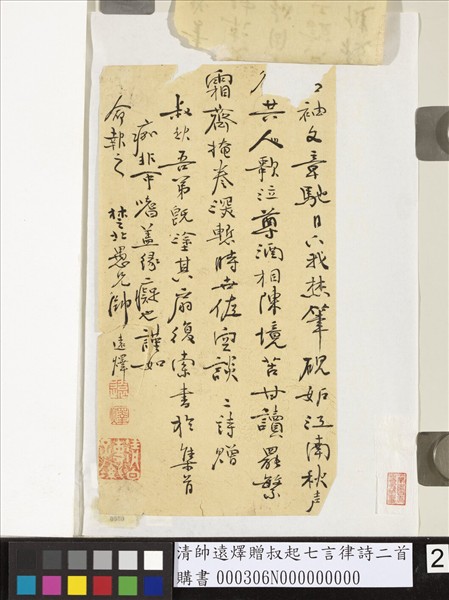 袖文章馳日下我慙筆硯如江南秋声
共人歌泣尊酒相陳境苦甘讀罷繁
霜齋掩卷深慙時世佐空談二詩贈
叔起吾弟既塗其扇復索書於集首
痂非可嗜蓋緣癡也謹如
命報之
楚北愚兄帥遠燡
清帥遠燡贈叔起七言律詩二首
購書 000306N000000000
2